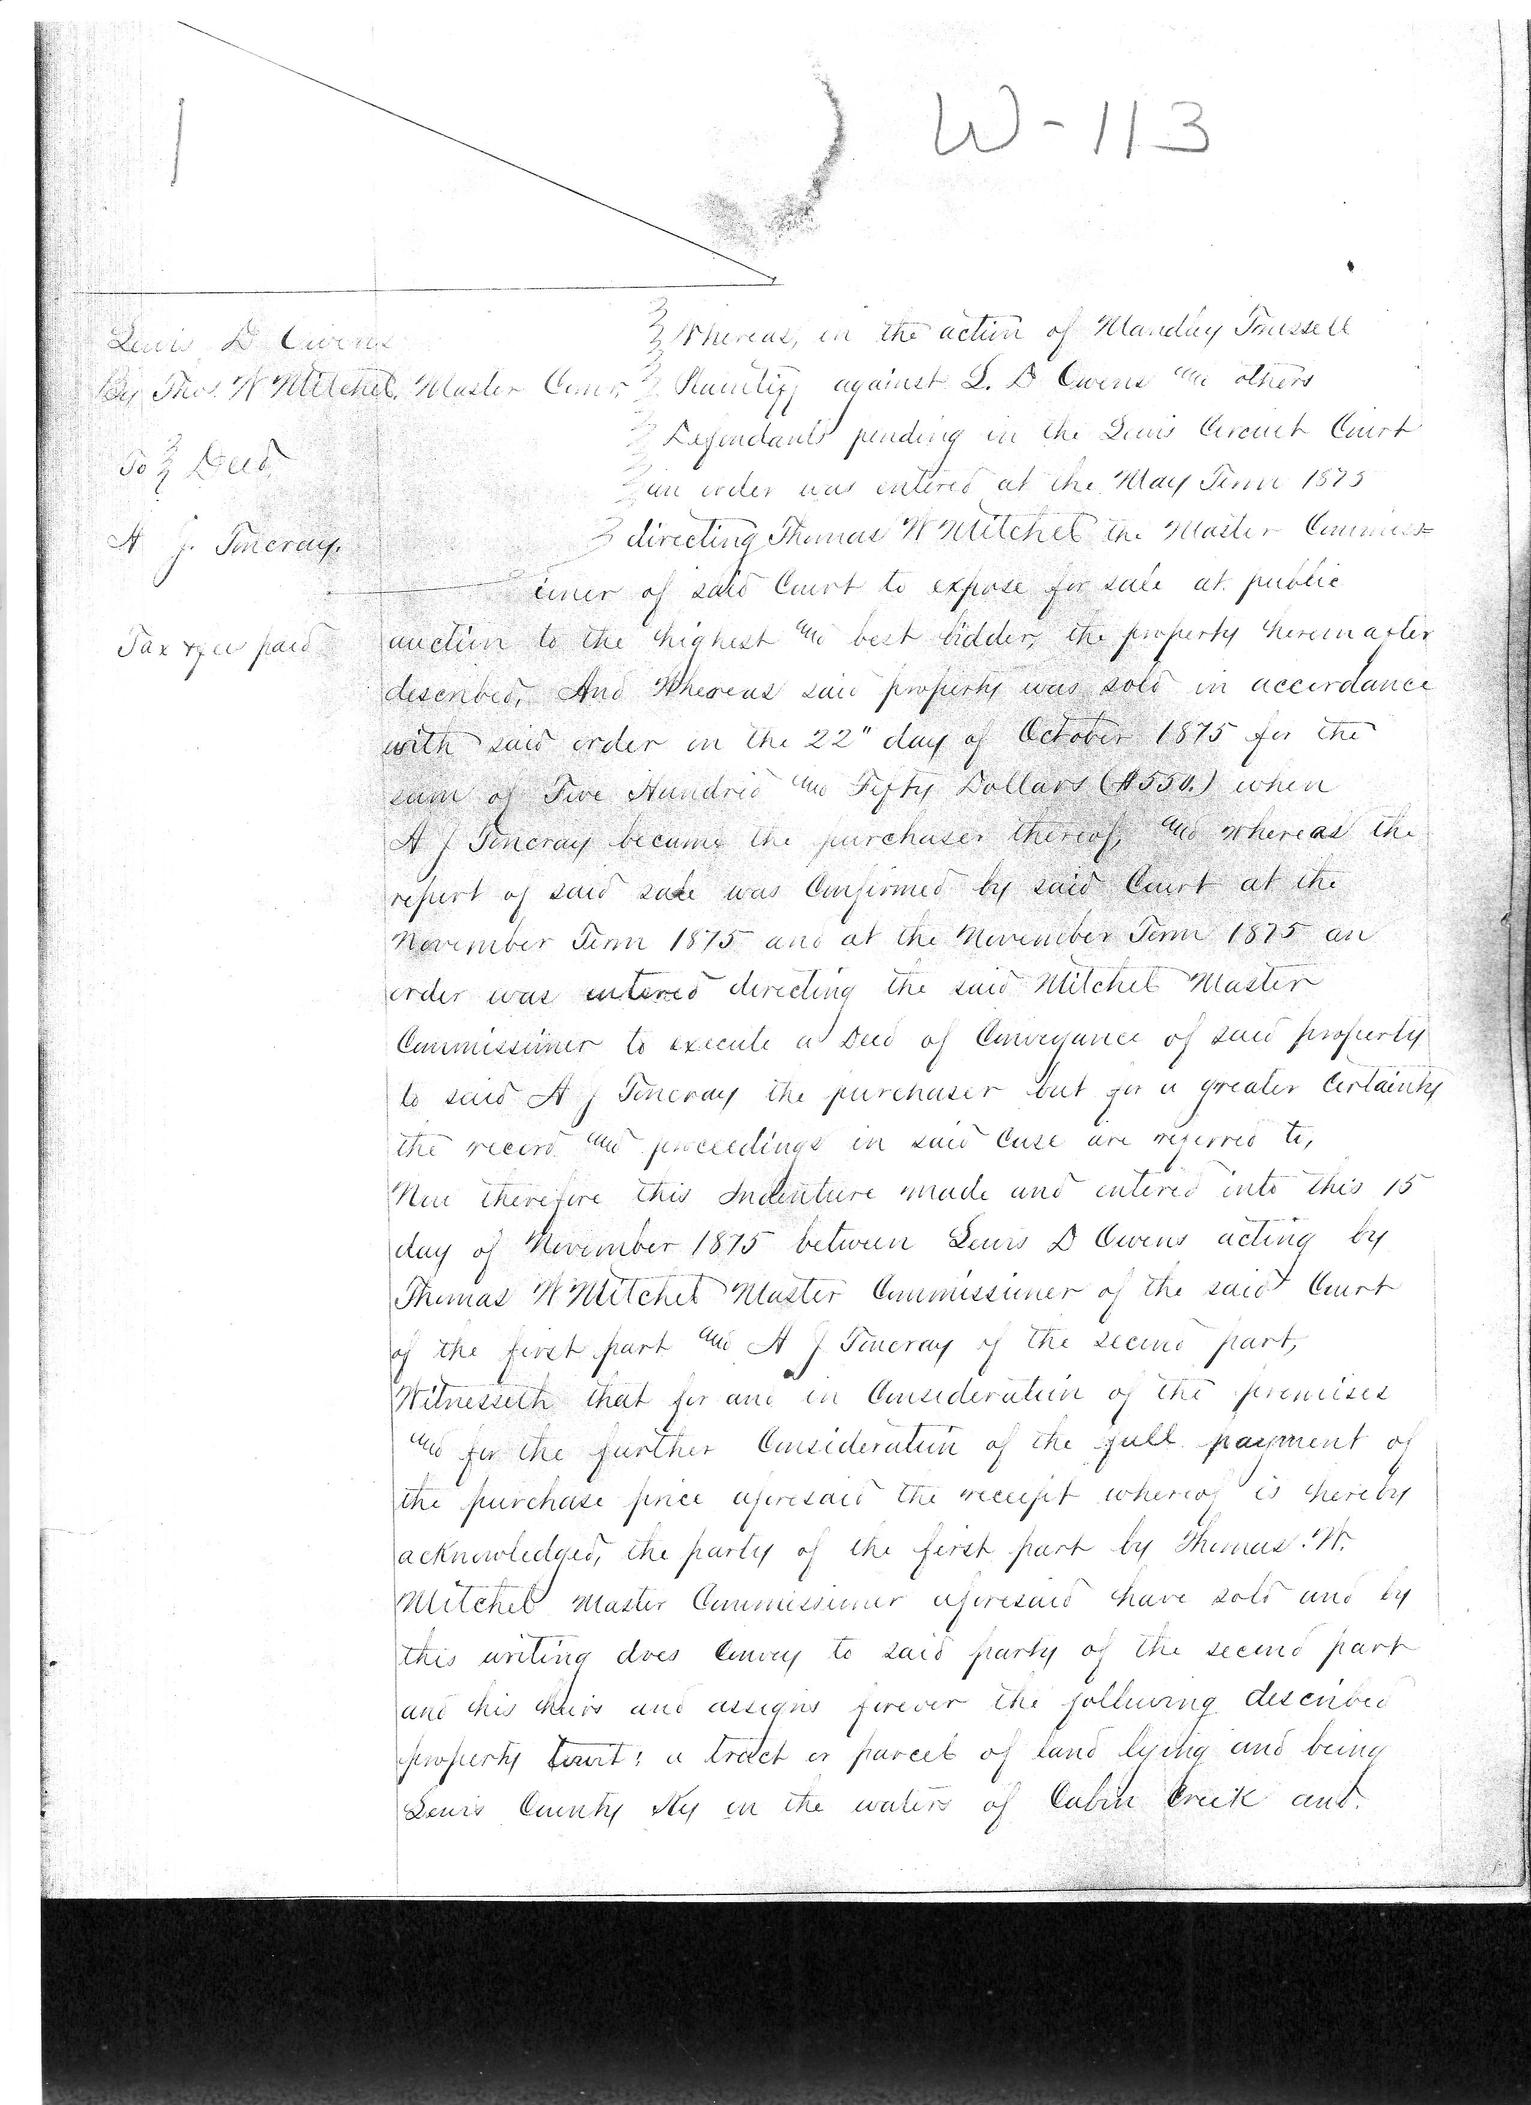 1
W-113
Lewis D Owens
By Thos. W Mitchel, Master Comr,
To Deed,
A J. Toncray.
Tax & fee paid
Whereas, in the action of Manduy Trussell
Plaintiff against L. D Owens and others
Defendants pending in the Lewis Circuit Court
an order was entered at the May Term 1875
directing Thomas W Mitchel the Master Commiss=
ioner of said Court to expose for sale at public
auction to the highest and best bidder, the property hereinafter
described, And Whereas said property was sold in accordance
with said order on the 22" day of October 1875 for the
sum of Five Hundred and Fifty Dollars ($550.) when
A J Toncray became the purchaser thereof, and whereas the
report of said sale was Confirmed by said Court at the
November Term 1875 and at the November Term 1875 an
order was entered directing the said Mitchel Master
Commissioner to execute a Deed of Conveyance of said property
to said A J Toncray the purchaser but for a greater Certainty
the record and proceedings in said Case are referred to,
Now therefore this Indenture made and entered into this 15
day of November 1875 between Lewis D Owens acting by
Thomas W Mitchel Master Commissioner of the said Court
of the first part and A J Toncray of the second part,
Witnesseth that for and in Consideration of the premises
and for the further Consideration of the full payment of
the purchase price aforesaid the receipt whereof is hereby
acknowledged, the party of the first part by Thomas. W.
Mitchel Master Commissioner aforesaid have sold and by
this writing does Convey to said party of the second part
and his heirs and assigns forever the following described
property towit: a tract or parcel of land lying and being
Lewis County Ky on the waters of Cabin Creek and.